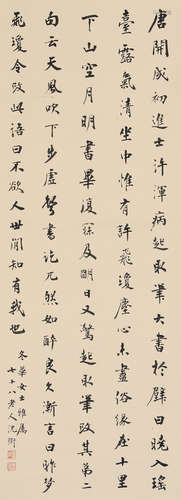 唐開成初進士許渾病起取筆大書於壁曰曉入瑤
臺露氣清坐中惟有許飛瓊塵心未盡俗緣在十里
下山空月明書畢復寐及明日又驚起取筆改其第二
句云天風吹下步虛聲書訖兀然如醉良久漸言曰昨夢
飛瓊令改此語曰不欲人世間知有我也
冬華女士雅屬
七十八老人沈衛